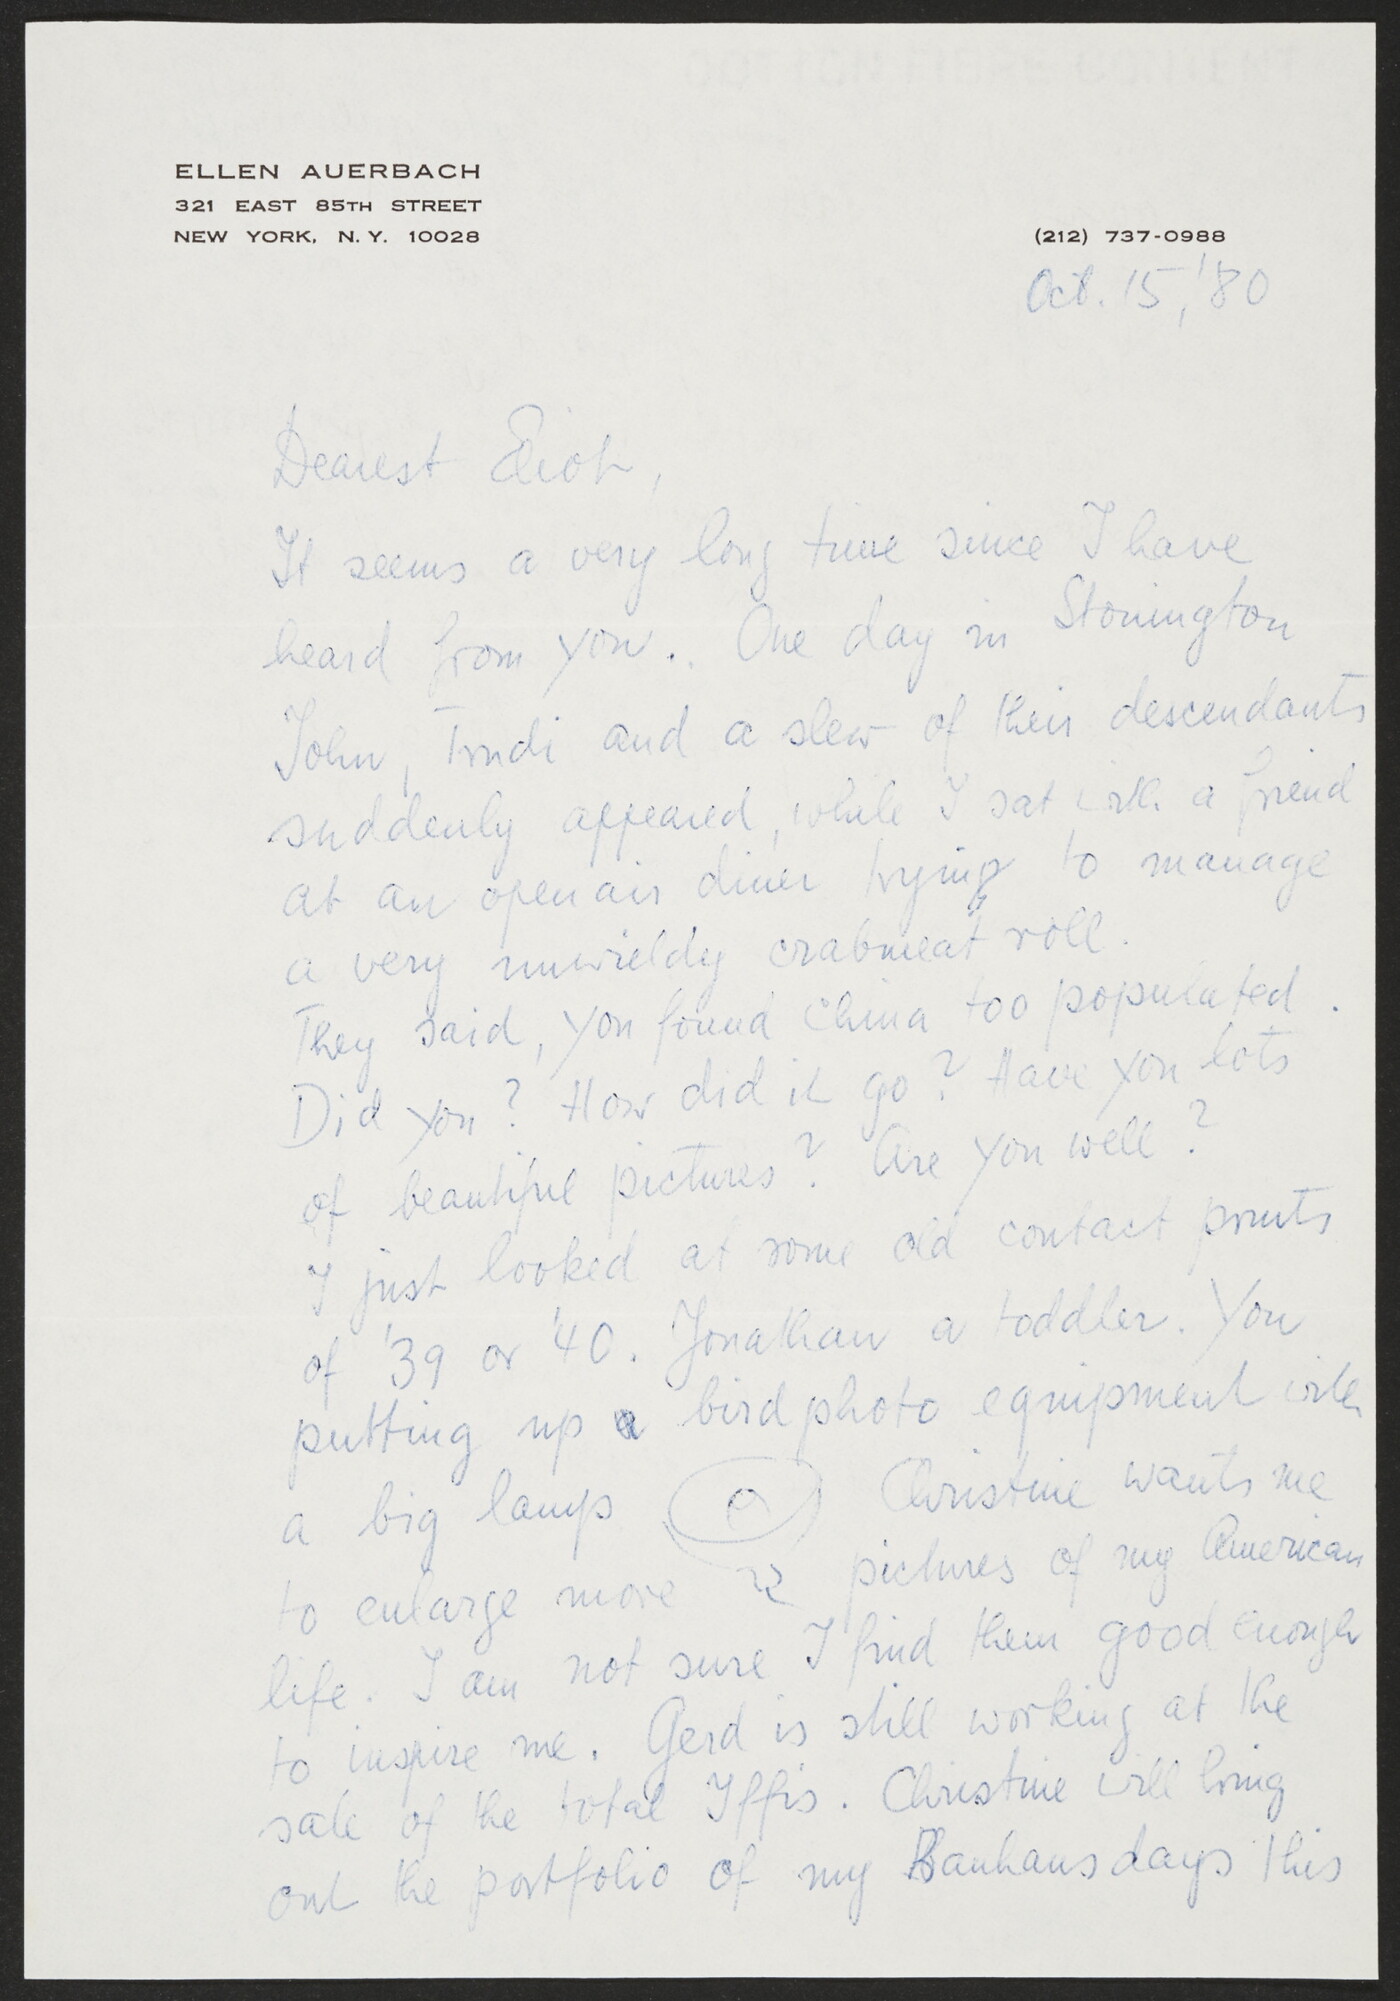 ELLEN AUERBACH
321 EAST 85TH STREET
NEW YORK, N.Y. 10028
(212) 737-0988
Oct. 15, '80
Dearest Eliot,
It seems a very long time since I have
heard from you.. One day in Stonington
John, Trudi and a slew of their descendants
suddenly appeared, while I sat with a friend
at an open air diner trying to manage
a very unwieldy crabmeat roll.
They said, you found China too populated.
Did you? How did it go? Have you lots
of beautiful pictures? Are you well?
I just looked at some old contact prints
of '39 or '40. Jonathan a toddler. You
putting up a bird photo equipment with
a big lamp Christine wants me
to enlarge more pictures of my American
life. I am not sure I find them good enough
to inspire me. Gerd is still working at the
sale of the total Iffis. Christine will bring
out the portfolio of my Bauhaus days this